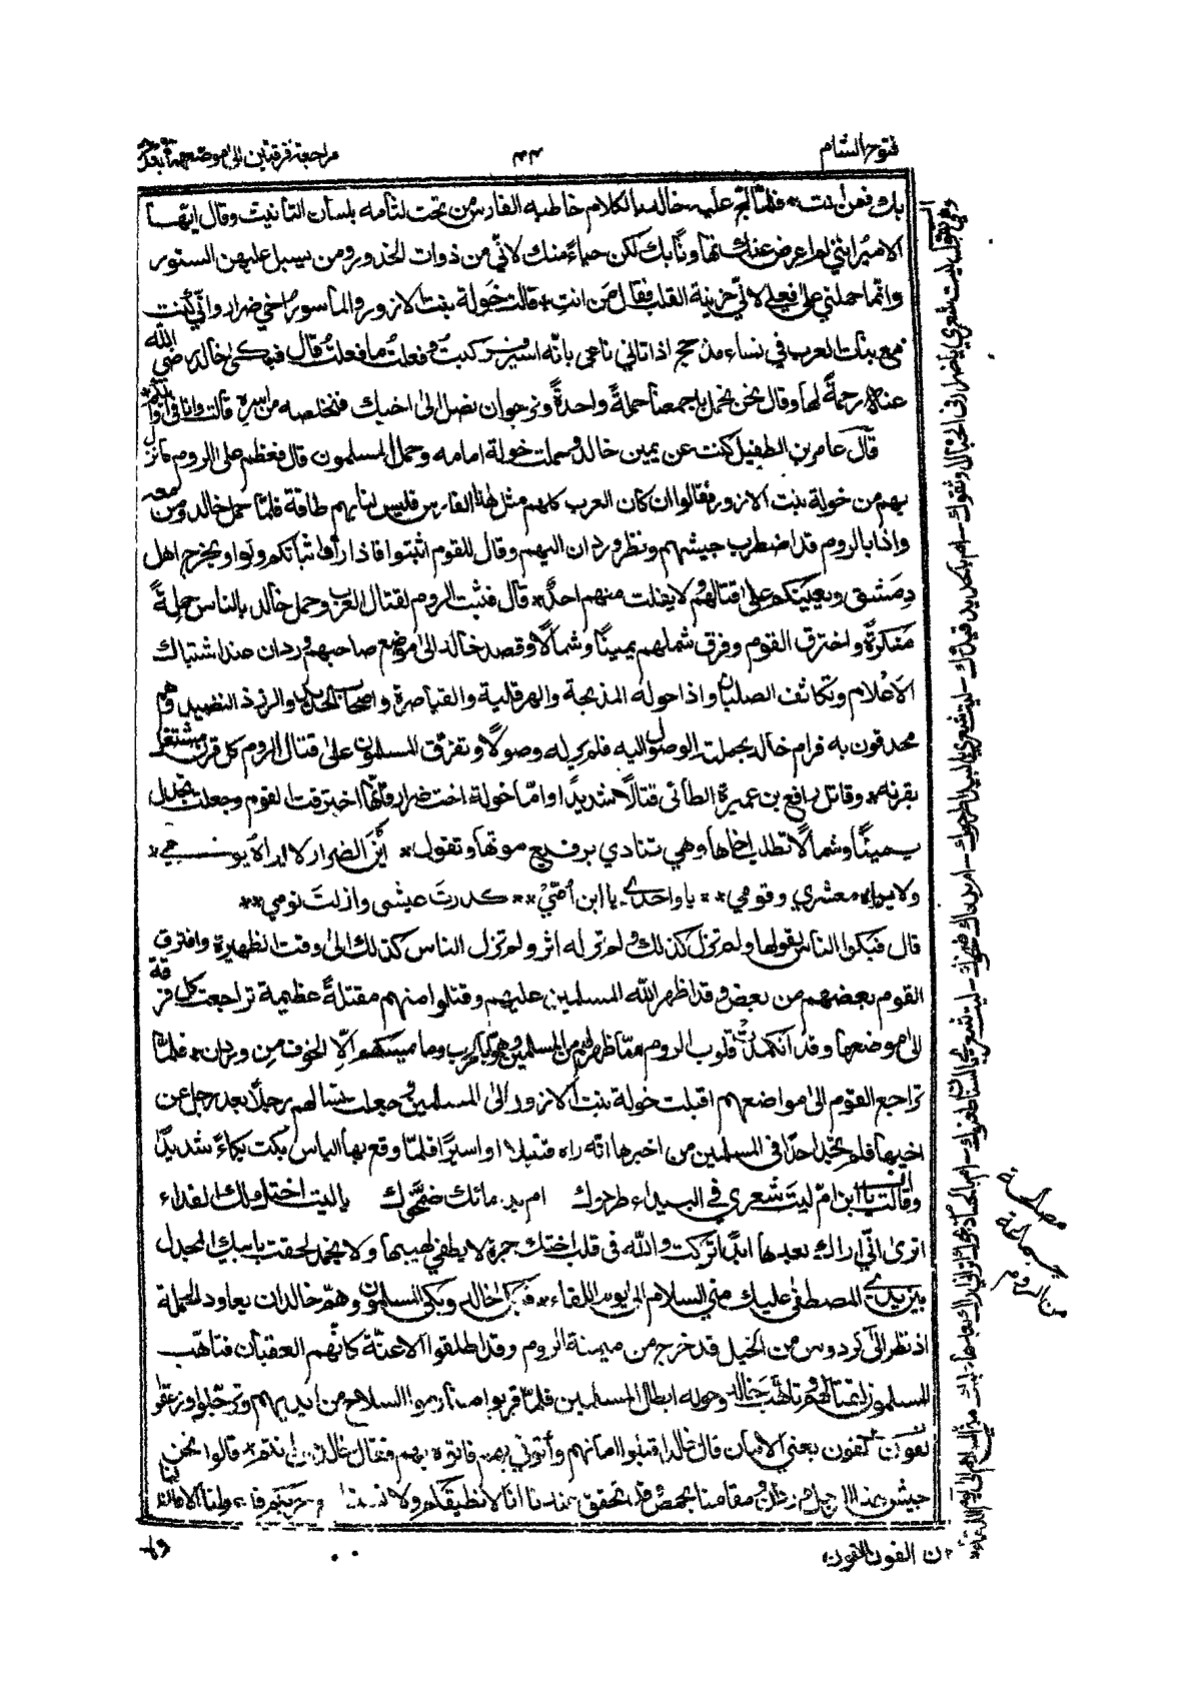 فتوح الشام
٤٤
مراجعة فرقتين الى موضعهما بعد
بك فمن انت * فلما لج عليه خالد بالكلام خاطبه الفارس من تحت لثامه بلسان التانيث وقال ايها
الامير انني لم اعرض عنك تهاونًا بك لكن حياءً منك لاني من ذوات الخدور ومن يسبل عليهن الستور
وانما حملني على فعلي لاني حزينة القلب فقال من انت * قالت خولة بنت الازور والماسور اخي ضرار واني كنت
مع بنات العرب في نساء مذحج اذ اتاني ناعي بانه اسير فركبت وفعلت ما فعلت قال فبكى خالد رضي الله
عنه رحمةً لها وقال نحن نحمل باجمعنا حملةً واحدةً ونرجوان نصل الى اخيك فنخلصه من اسره قالت وانا في اوائلكم
قال عامر بن الطفيل كنت عن يمين خالد وحملت خولة امامه وحمل المسلمون قال فعظم على الروم ما نزل
بهم من خولة بنت الازور فقالوا ان كان العرب كلهم مثل هذا الفارس فليس لنا بهم طاقة فلما حمل خالد ومن معه
واذا بالروم قد اضطرب جيشهم ونظر وردان اليهم وقال للقوم اثبتوا فاذا راوا ثباتكم ولوا ويخرج اهل
دمشق ويعينكم على قتالهم لا يفلت منهم احدٌ * قال فثبت الروم لقتال العرب وحمل خالد بالناس حملةً
منكرةً واخترق القوم وفرق شملهم يمينًا وشمالًا وقصد خالد الى موضع صاحبهم وردان عند اشتباك
الاعلام وتكاثف الصلبان واذا حوله المذبجة والهرقلية والقياصرة واصحاب الحديد والزرد النضيد وهم
محدقون به فرام خالد بجملته الوصول اليه فلم ير له وصولًا وتفرق المسلمون على قتال الروم كل قرن مشتغل
بقرنه * وقاتل رافع بن عميرة الطائى قتالًا شديدًا واما خولة اخت ضرار فانها اخترقت القوم وجعلت تجول
يمينًا وشمالًا تطلب اخاها وهي تنادي برفيع صوتها وتقول * اين الضرار لا اراه يومي *
ولا يراه معشري وقومي ** يا واحدي يا ابن امي ** كدرت عيشى وازلت نومي **
قال فبكوا الناس بقولها ولم تزل كذلك ولم تر له اثر ولم تزل الناس كذلك الى وقت الظهيرة وافترق
القوم بعضهم من بعض وقد اظهر الله المسلمين عليهم وقتلوا منهم مقتلةً عظيمة تراجعت كل فرقة
الى موضعها وقد انكمدت قلوب الروم مما ظهر لهم من المسلمين وهموا بالهرب وما يمسكهم الا الخوف من وردان * فلما
تراجع القوم الى مواضعهم اقبلت خولة بنت الازور الى المسلمين وجعلت تسالهم رجلًا بعد رجل عن
اخيها فلم تجد احدًا في المسلمين من اخبرها انه راه قتيلًا او اسيرًا فلما وقع بها الياس بكت بكاءً شديدًا
وقالت يا ابن ام ليت شعري في البيداء طرحوك ام بدمائك ضمخوك ياليت اختك لك الفداء
اترى اني اراك بعدها ابدًا تركت والله في قلب اختك جمرة لا يطفي لهيبها ولا يخمد لحقت بابيك
بين يدي المصطفى عليك مني السلام الى يوم اللقاء * فبكى خالد وبكى المسلمون وهم خالد ان يعاود الحملة
اذ نظر الى كردوس من الخيل قد خرج من ميمنة الروم وقد اطلقوا الاعنة كانهم العقبان فتاهب
المسلمون لقتالهم وتاهب خالد وحوله ابطال المسلمين فلما قربوا منا رموا السلاح من ايديهم وترجلوا وزعقوا
لفون لفون يعني الامان قال خالد اقبلوا امانهم وأتوني بهم فاتوه بهم فقال خالد من انتم * قالوا نحن
جيش هذا الرجل وردان ومقامنا بحمص وقد تحقق عندنا انا لا نطيقكم ولا
ن الفون القون
مصالحة
جماعة
من الروم